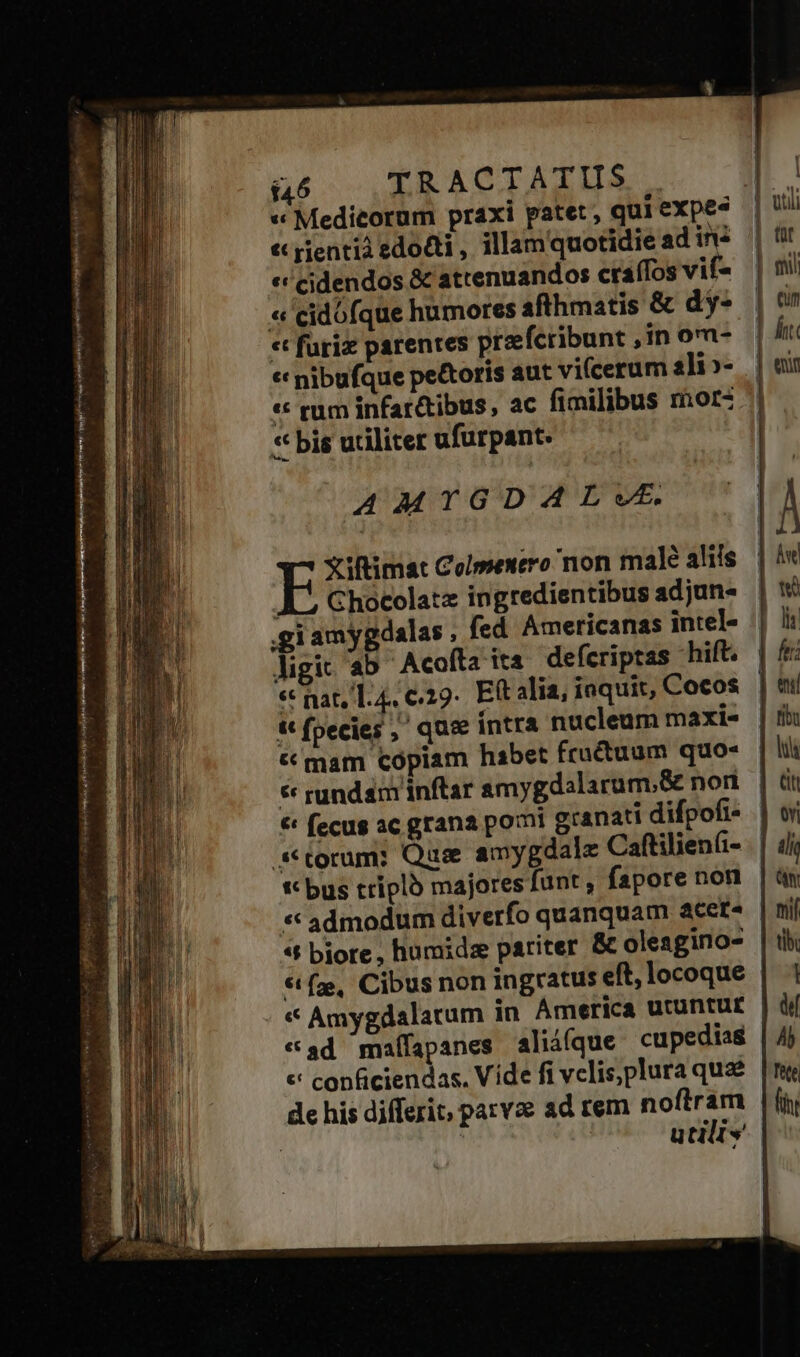 146 TRACTATUS
“ Medicorum praxi patet, qui expe-
“ rientiâ edocti, illam quotidie ad in-
“ cidendos & attenuandos craſſos viſ-
“ cidóſque humores aſthmatis & dy-
“ ſuriæ parentes præſcribunt, in om-
“ nibuſque pectoris aut viſcerum alio-
“ rum infarctibus, ac ſimilibus mor-
“ bis utiliter uſurpant.
AMYGDALÆ.
EXiſtimat Colmenero non malè aliis
Chocolatæ ingredientibus adjun-
gi amygdalas, ſed Americanas intel-
ligit ab Acoſta ita deſcriptas hiſt.
“ nat. l.4. c.29. Eſt alia, inquit, Cocos
“ ſpecies, quæ intra nucleum maxi-
“ mam copiam habet fructuum quo-
“ rundam inſtar amygdalarum, & non
“ ſecus ac grana pomi granati diſpoſi-
“ torum: Quæ amygdalæ Caſtilienſi-
“ bus triplò majores ſunt, ſapore non
“ admodum diverſo quanquam acer-
“ biore, humidæ pariter & oleagino-
“ ſæ, Cibus non ingratus eſt, locoque
“ Amygdalarum in America utuntur
“ ad maſſapanes aliáſque cupedias
“ conficiendas. Vide ſi velis, plura quæ
de his diſſerit, parvæ ad rem noſtram
utili-